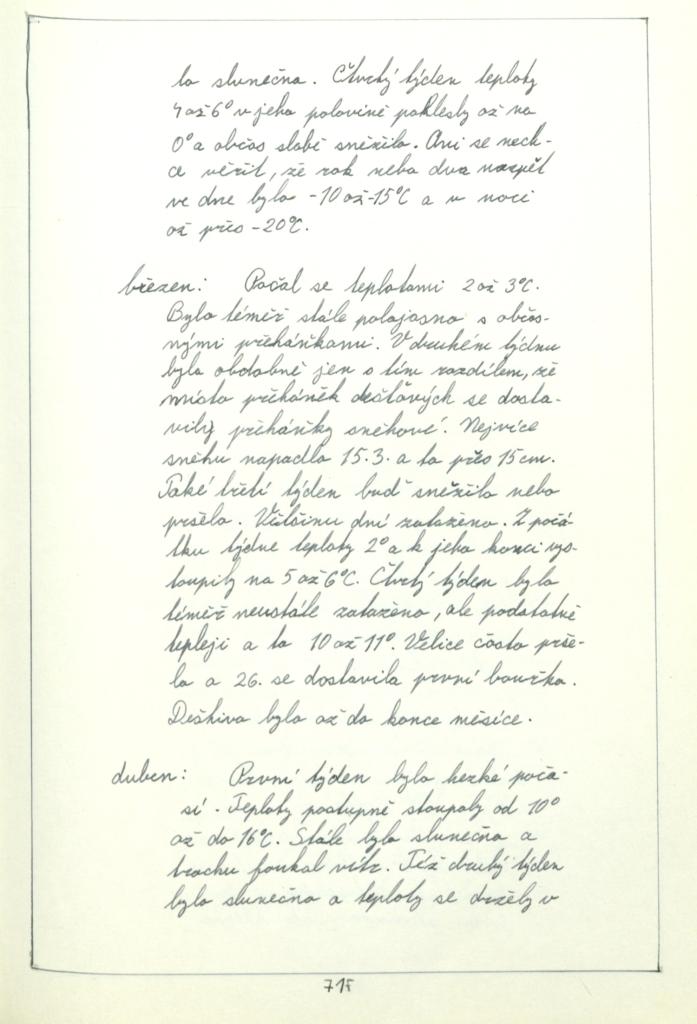 lo slunečno. Čtvrtý týden teploty
4 až 6° v jeho polovině poklesly až na
0° a občas slabě sněžilo. Ani se nech-
ce věřit, že rok nebo dva nazpět
ve dne bylo -10 až -15°C a v noci
až přes -20°C.
březen: Počal se teplotami 2 až 3°C.
Bylo téměř stále polojasno s občas-
nými přeháňkami. V druhém týdnu
bylo obdobně jen s tím rozdílem, že
místo přeháněk dešťových se dosta-
vily přeháňky sněhové. Nejvíce
sněhu napadlo 15.3. a to přes 15 cm.
Také třetí týden buď sněžilo nebo
pršelo. Většinu dní zataženo. Z počá-
tku týdne teploty 2° a k jeho konci vys-
toupily na 5 až 6°C. Čtvrtý týden bylo
téměř neustále zataženo, ale podstatně
tepleji a to 10 až 11°. Velice často prše-
lo a 26. se dostavila první bouřka.
Deštivo bylo až do konce měsíce.
duben: První týden bylo hezké poča-
sí. Teploty postupně stoupaly od 10°
až do 16°C. Stále bylo slunečno a
trochu foukal vítr. Též druhý týden
bylo slunečno a teploty se držely v